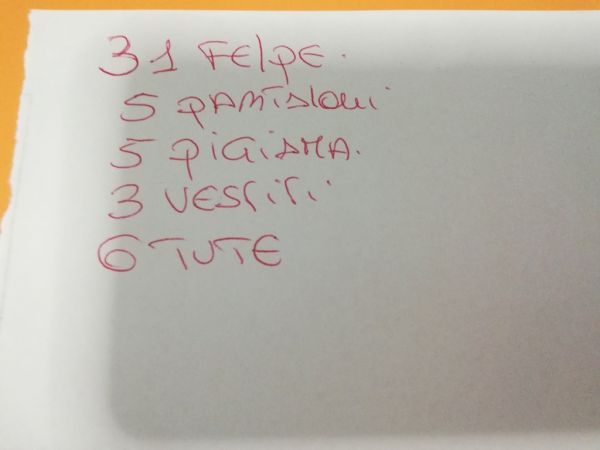 31 FElPE.
5 PANTAlONi
5 PIGIAMA.
3 VESTITI
6 TUTE